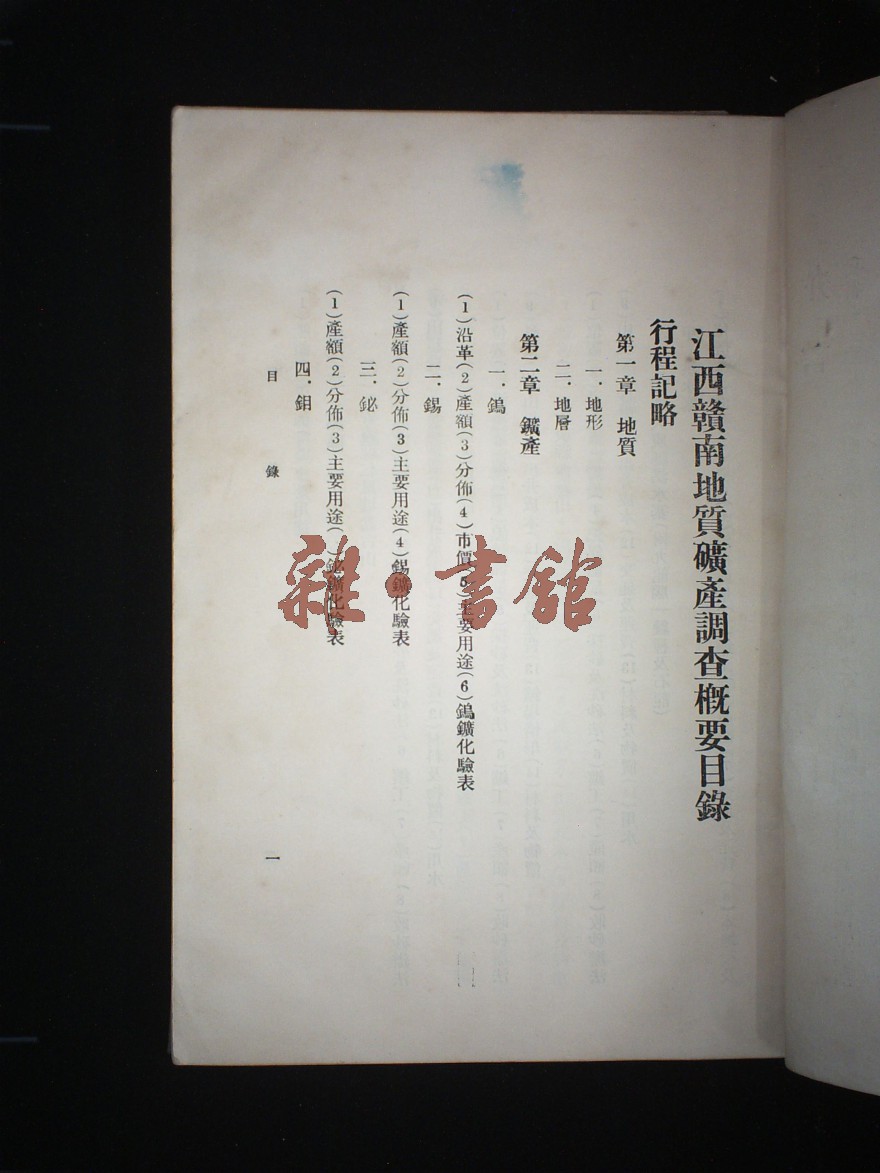 江西贛南地質礦產調查槪要目錄
行程記略
第一章　地質
一．地形
二．地層
第二章　鑛產
一．鎢
(1)沿革(2)產額(3)分佈(4)市價(5)主要用途(6)鎢鑛化驗表
二．錫
(1)產額(2)分佈(3)主要用途(4)錫鑛化驗表
三．鉍
(1)產額(2)分佈(3)主要用途()鉍鑛化驗表
四．鉬
目　錄　一
雜·書館